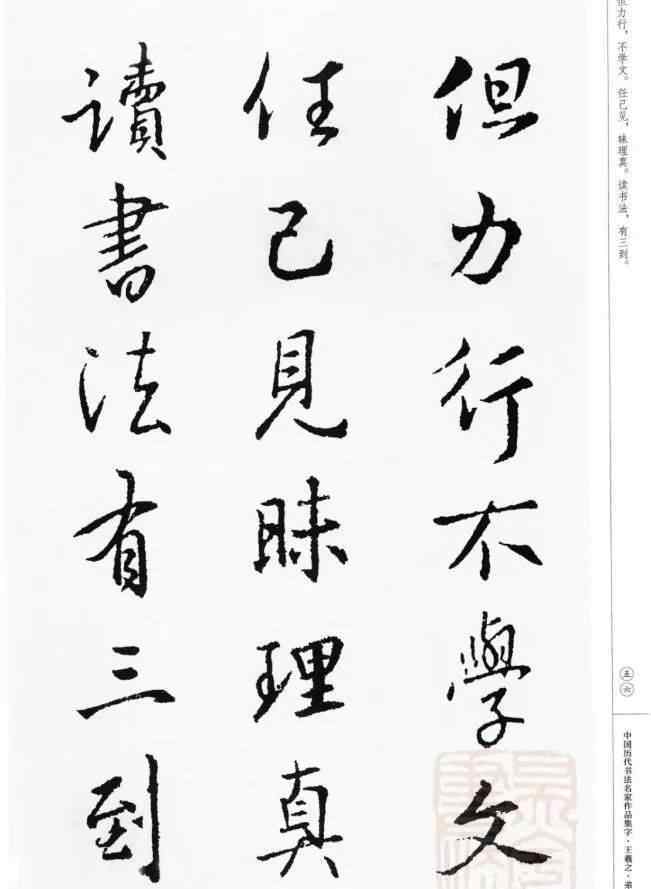 但力行不學文
任己見昧理真
讀書法有三到
力行，不学文。任己见，昧理真。读书法，有三到。
五六
中国历代书法名家作品集字·王羲之·弟